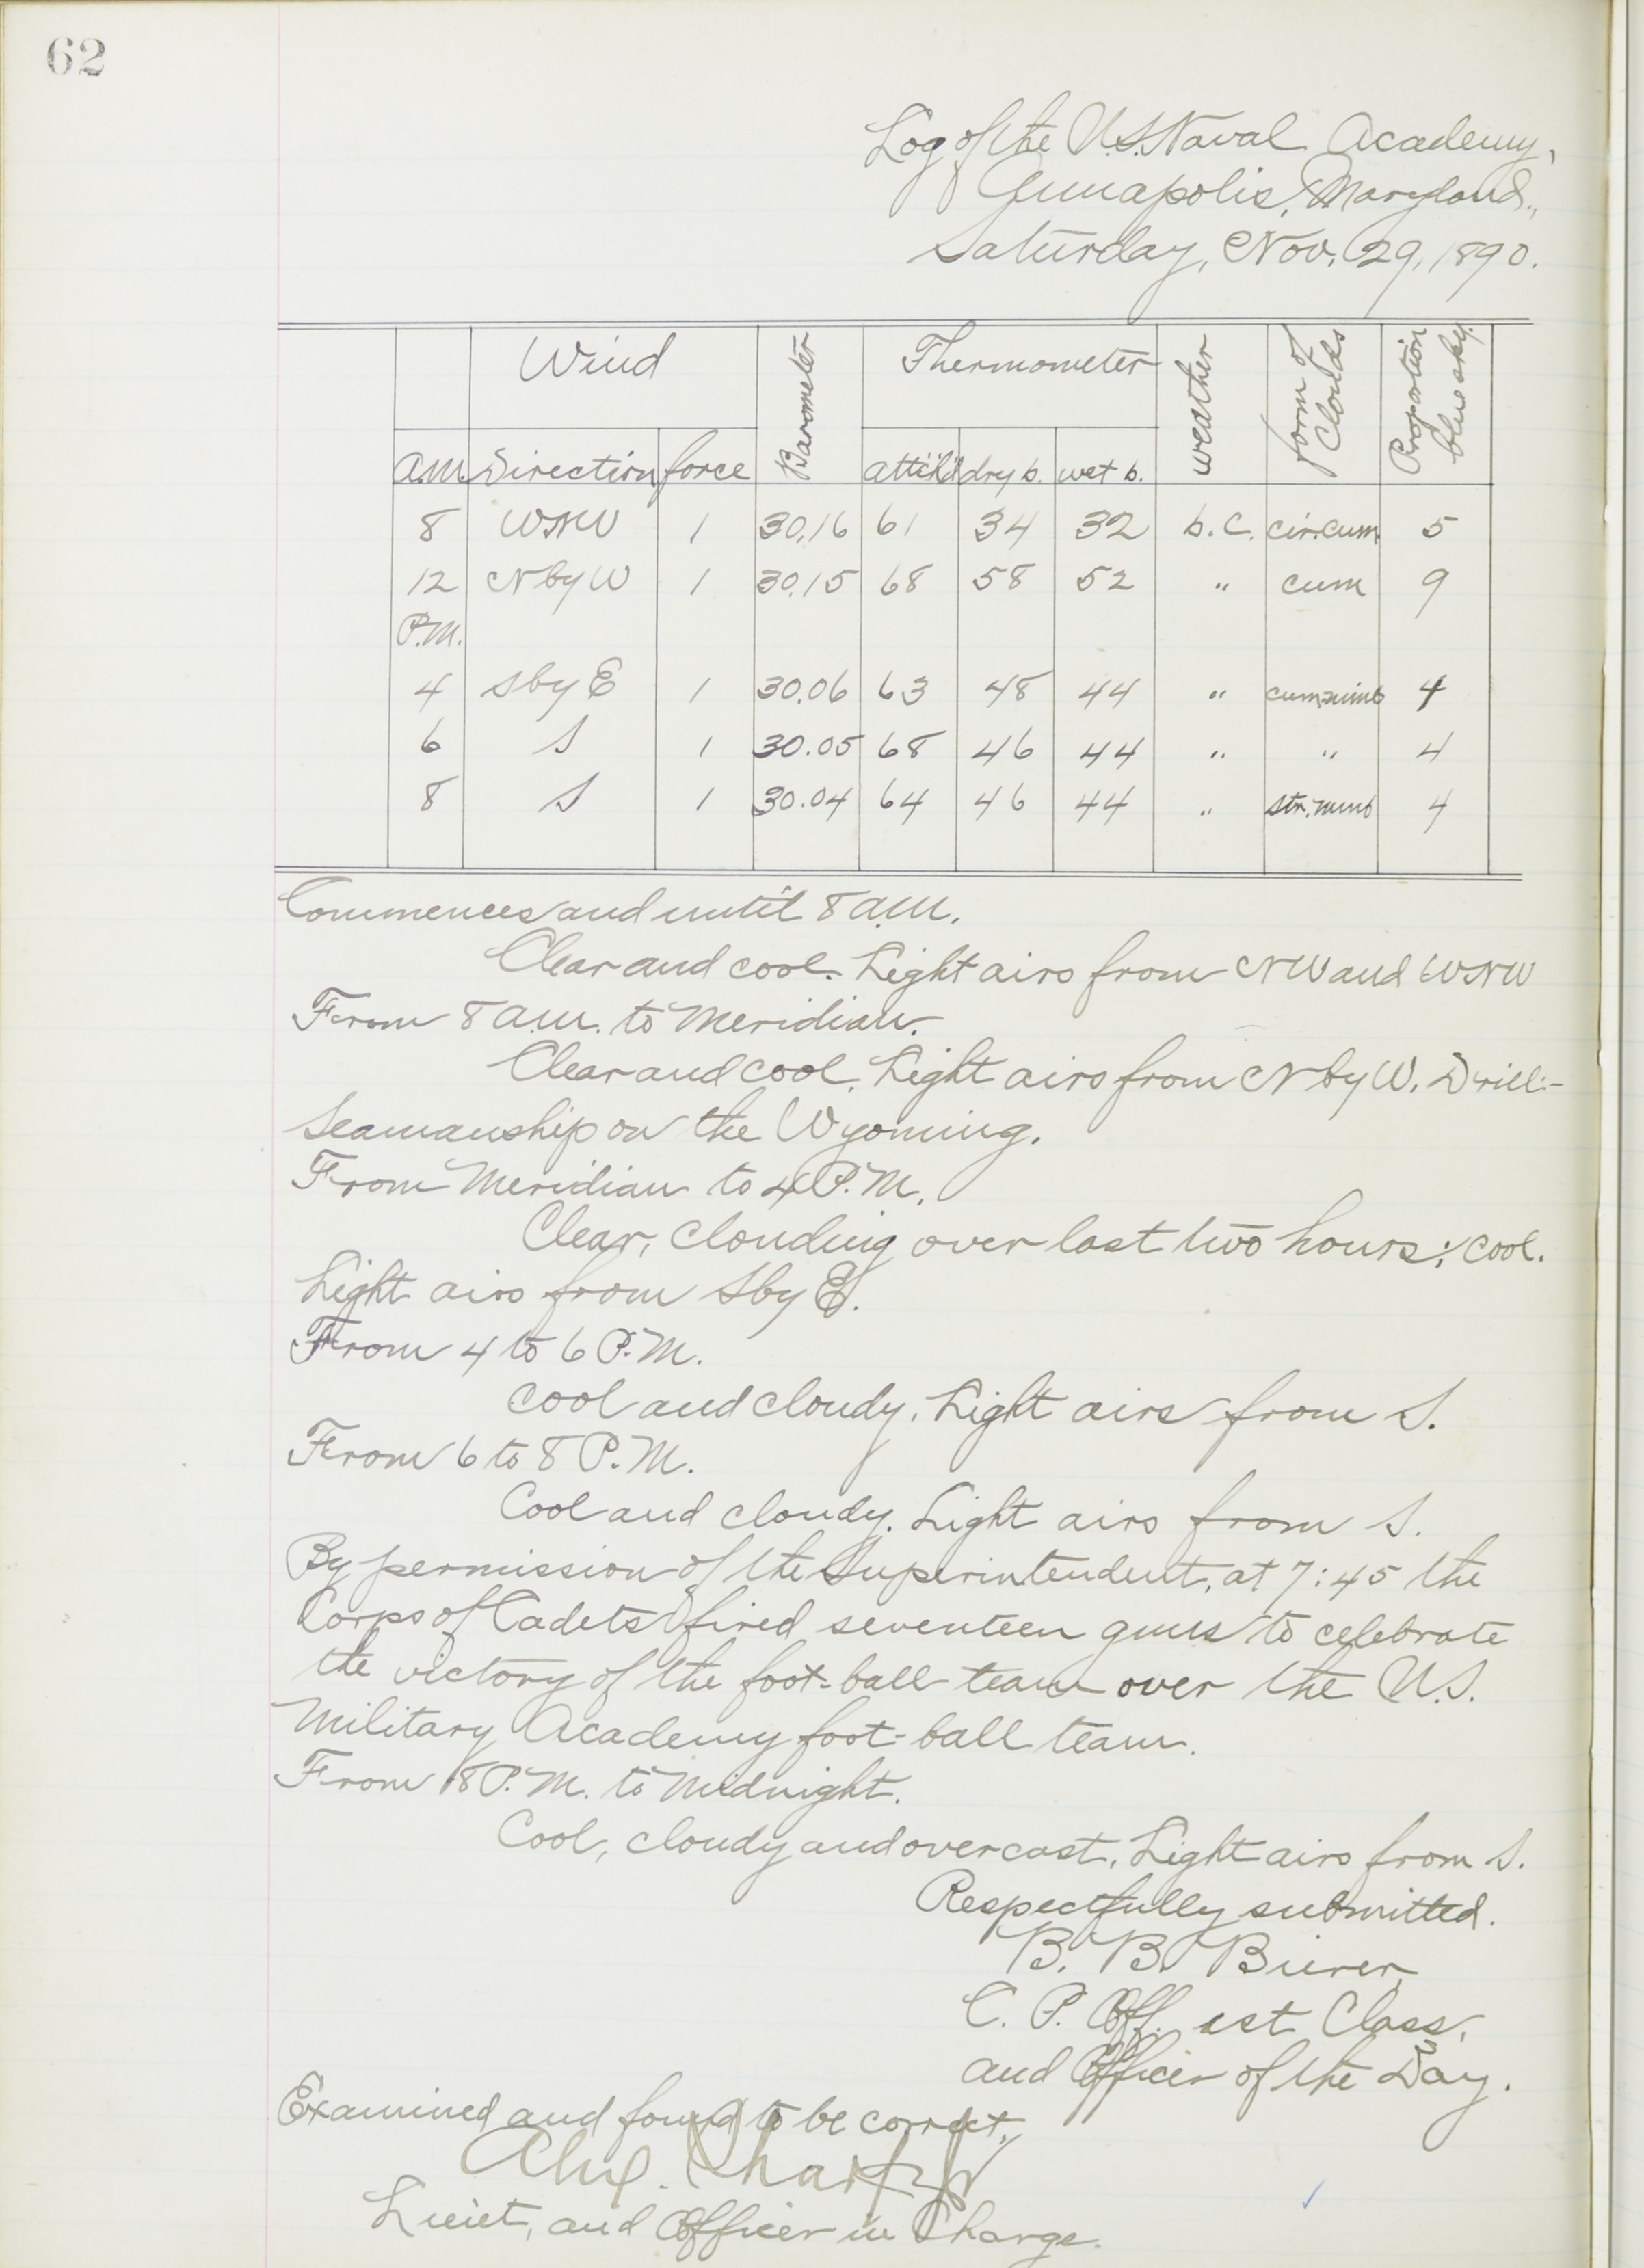 62
Log of the U.S. Naval Academy,
Annapolis, Maryland.,
Saturday, Nov. 29, 1890.
Wind Barometer Thermometer weather form of Clouds Proportion blue sky.
A.M. Direction force att'h'd dry b. wet b.
8 WNW 1 30.16 61 34 32 b.c. cir.cum. 5
12 N by W 1 30.15 68 58 52 " cum 9
P.M.
4 S by E 1 30.06 63 48 44 " cum.nimb 4
6 S 1 30.05 68 46 44 " " 4
8 S 1 30.04 64 46 44 " str.nimb 4
Commences and until 8 a.m.
Clear and cool. Light airs from NW and WNW
From 8 a.m. to Meridian.
Clear and cool. Light airs from N by W. Drill:-
Seamanship on the Wyoming.
From Meridian to 4 P.M.
Clear, clouding over last two hours; cool.
Light airs from S by E.
From 4 to 6 P.M.
Cool and cloudy. Light airs from S.
From 6 to 8 P.M.
Cool and cloudy. Light airs from S.
By permission of the Superintendent, at 7:45 the
Corps of Cadets fired seventeen guns to celebrate
the victory of the foot-ball team over the U.S.
Military Academy foot-ball team.
From 8 P.M. to Midnight.
Cool, cloudy and overcast. Light airs from S.
Respectfully submitted.
B. B. Bierer,
C. P. Off. 1st Class,
and Officer of the Day.
Examined and found to be correct.
Alex. Sharp Jr
Lieut, and Officer in Charge.